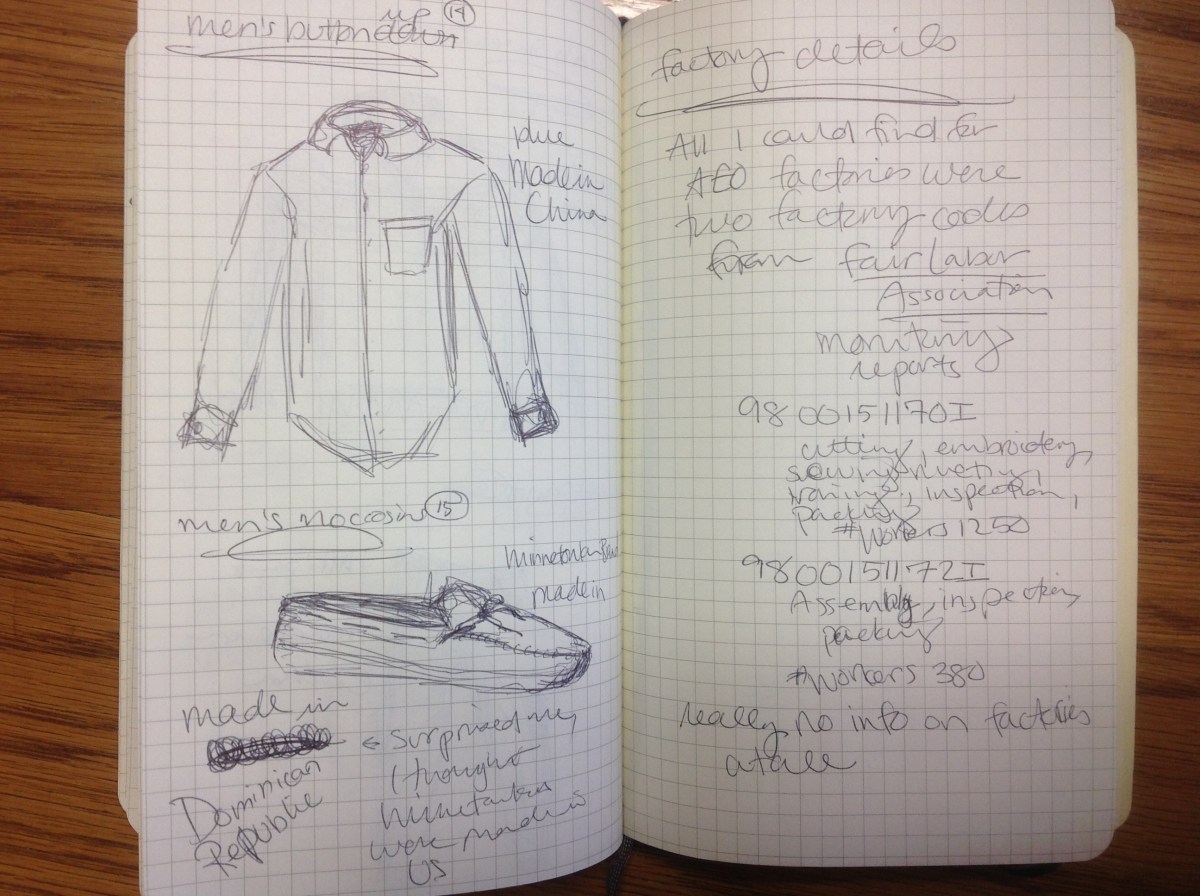 men's button up
14
made in
China
men's moccasins
15
Minnetonka
made in
made in
Dominican
Republic
← Surprised me,
I thought
Minnetonkas
were made in
US
factory details
All I could find for
AEO factories were
two factory codes
from fair labor
Association
monitoring
reports
98 00151170I
cutting, embroidery,
sewing,
ironing, inspection,
packing
#Workers 1250
98001511172I
Assembly, inspection,
packing
#Workers 380
really no info on factories
at all